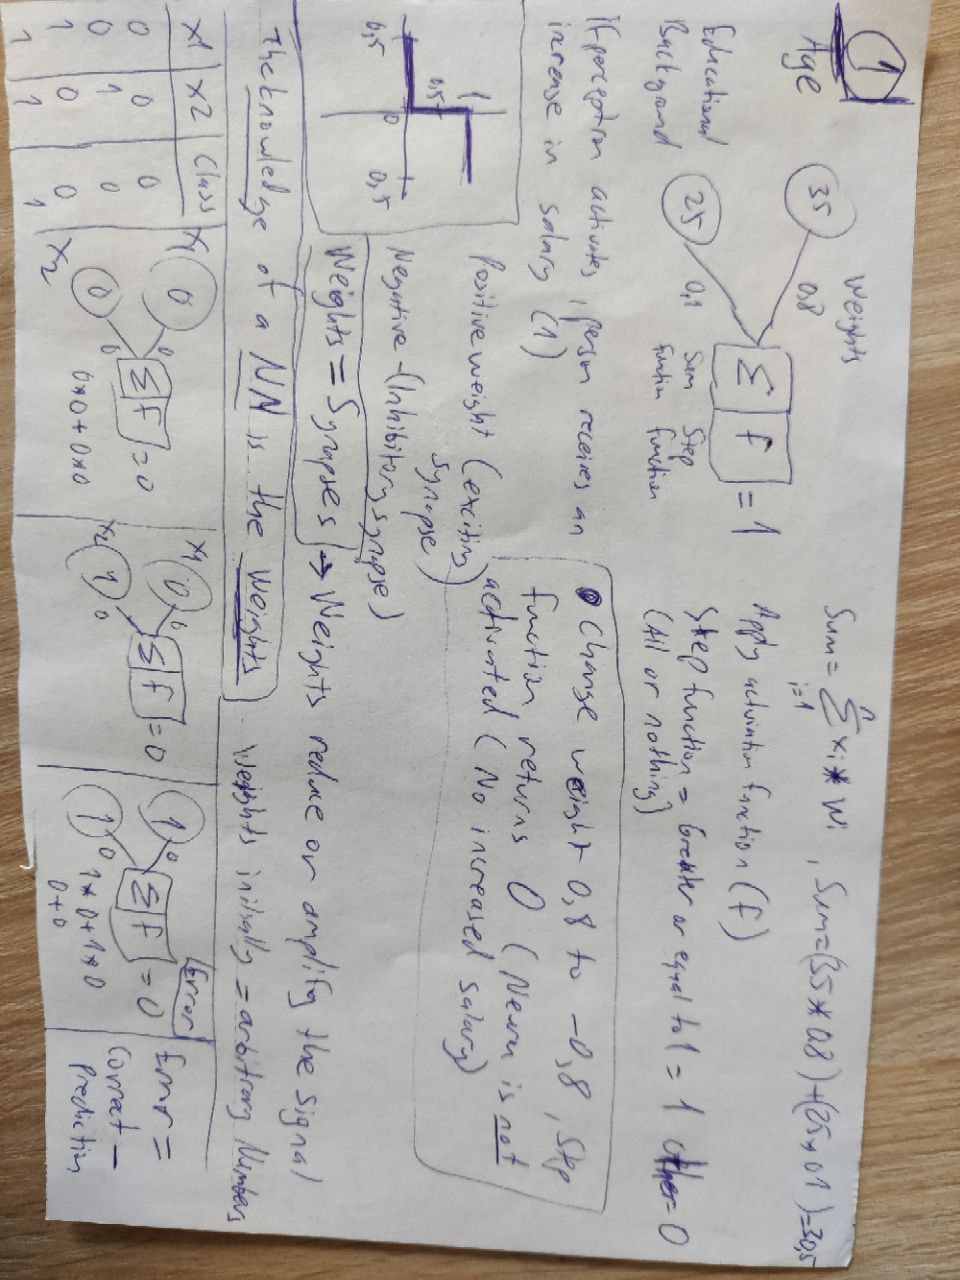 1
Age
Weights
35
0,8
Σ f = 1
Educational
Backgroond
25
0,1
Sum
funtion
Step
function
Sum = Σ xi * wi , Sum = (35 * 0,8) + (25 * 0,1) = 30,5
n
i=1
Apply activation function (f)
Step function = Greater or equal to 1 = 1 other = 0
(All or nothing)
if perceptron activates, person receives an
increase in salary (1)
Change weight 0,8 to -0,8, Step
function returns 0 (Neuron is not
activated (No increased salary)
1
0,5
0,5 0 0,5
Positive weight (exciting
synapse)
Negative - (Inhibitory synapse)
Weights = Synapses → Weights reduce or amplify the signal
The knowledge of a NN is the weights
Weights initially = arbitrary Numbers
x1 x2 Class
0 0 0
0 1 0
1 0 0
1 1 1
x1 0 0
Σ f = 0
0 0
x2
0*0 + 0*0
x1 0 0
Σ f = 0
x2 1 0
Error
1 0
Σ f = 0
1 0
1*0+1*0
0+0
Error =
Correct -
Prediction